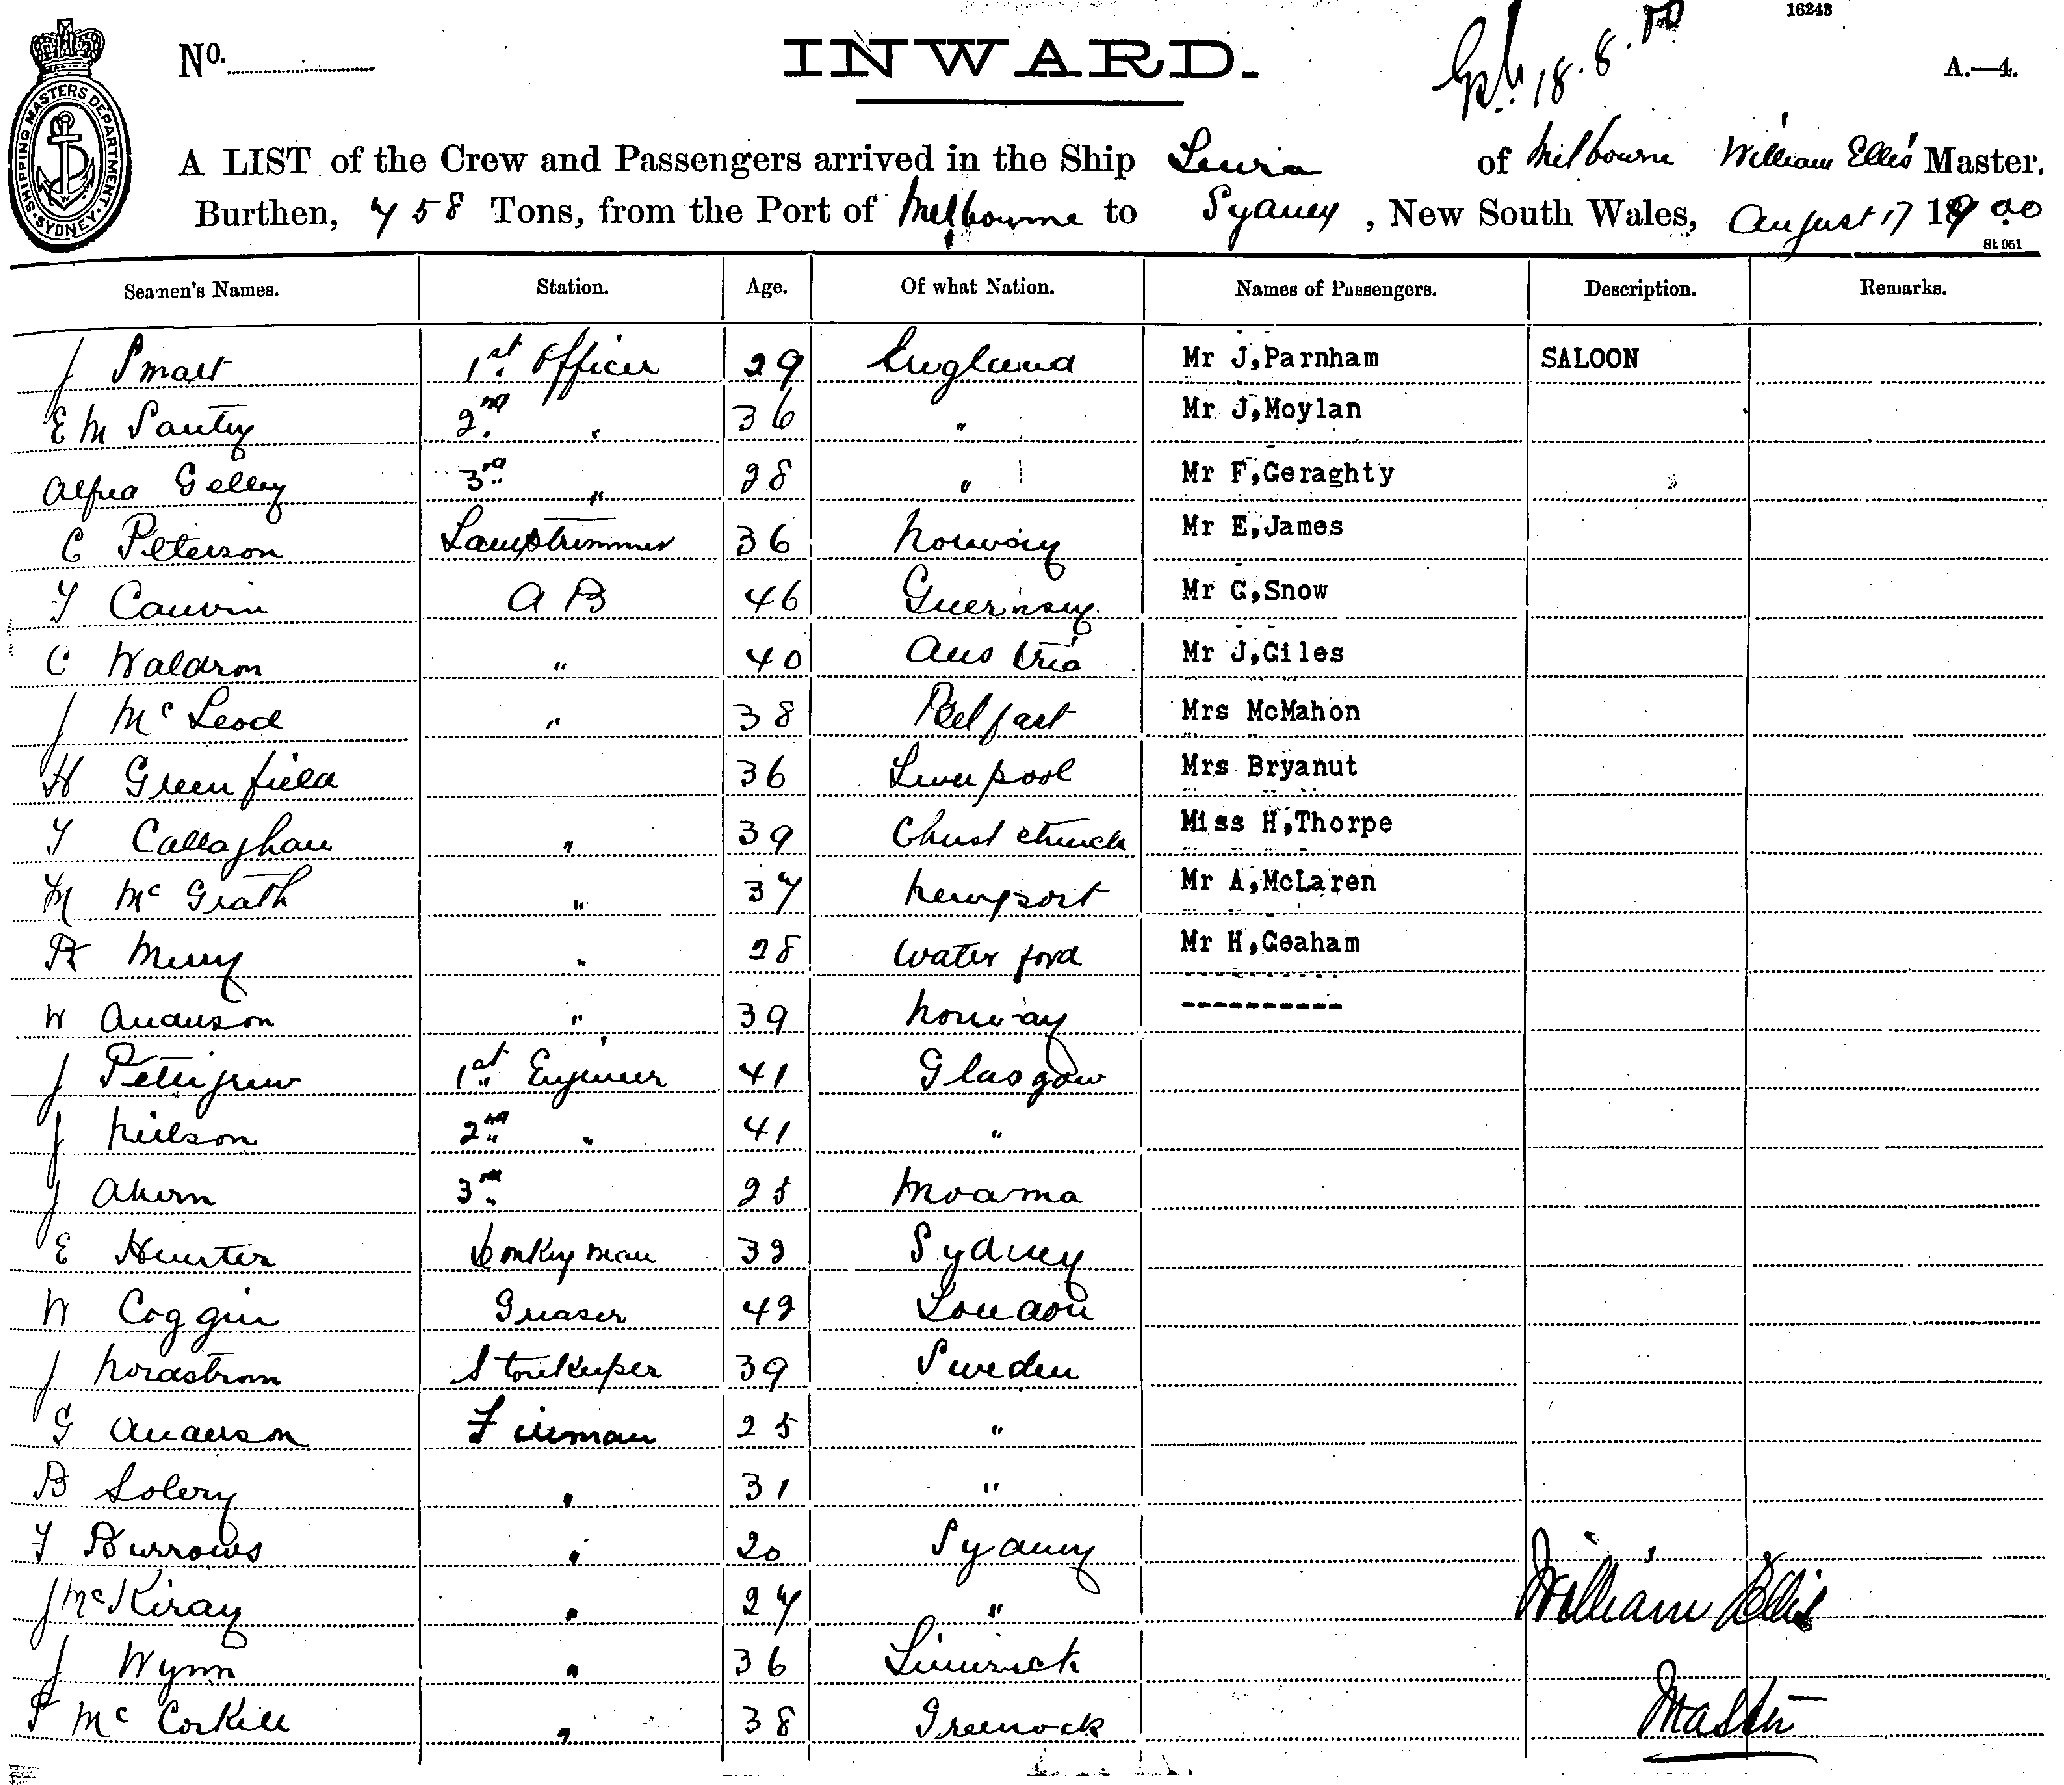 16243
No.
INWARD.
18.8.00
A.—4.
SHIPPING MASTERS DEPARTMENT. SYDNEY
A LIST of the Crew and Passengers arrived in the Ship of Melbourne William Ellis Master.
Burthen, 758 Tons, from the Port of Melbourne to Sydney, New South Wales, August 17 1900
St 951
Seamen's Names. Station. Age. Of what Nation. Names of Passengers. Description. Remarks.
J Smart 1st Officer 29 England Mr J,Parnham SALOON
E M 2nd " 36 " Mr J,Moylan
Alfred Gelley 3rd " 28 " Mr F,Geraghty
C Peterson Lamptrimmer 36 Norway Mr E,James
T Cauvin A B 46 Guernsey Mr G,Snow
C Waldron " 40 Austria Mr J,Giles
J McLeod " 38 Belfast Mrs McMahon
H Greenfield 36 Liverpool Mrs Bryanut
T Callaghan " 39 Christchurch Miss H,Thorpe
M McGrath " 37 Newport Mr A,McLaren
R Merry " 28 Waterford Mr H,Geaham
W Anderson " 39 Norway ----------
J Pettigrew 1st Engineer 41 Glasgow
J Neilson 2nd " 41 "
J Ahern 3rd 25 Moama
E Hunter Donkeyman 32 Sydney
W Coggin Greaser 42 London
J Nordstrom Storekeeper 39 Sweden
G Anderson Fireman 25 "
B Solery " 31 "
T Burrows " 20 Sydney
J McKiray " 27 "
William Ellis
J Wynn " 36 Limerick
Master
P McCorkill " 38 Greenock